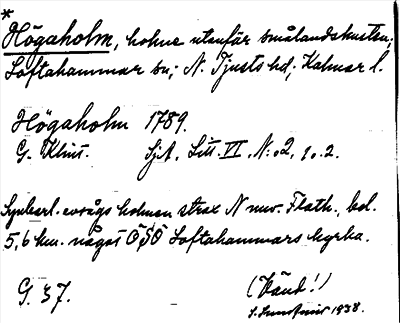 *
Högaholm, holme utanför smålandskusten;
Loftahammar sn; N. Tjusts hd; Kalmar l.
Högaholm 1789.
G. Klint. Sjöt, Litt. VI, N:o 2, 1.0.2.
Synbarl. avsågs holmen strax N nuv. Flath., bel.
5,6 km. något ÖSÖ Loftahammars kyrka.
G. 37. (Vänd!)
1938.